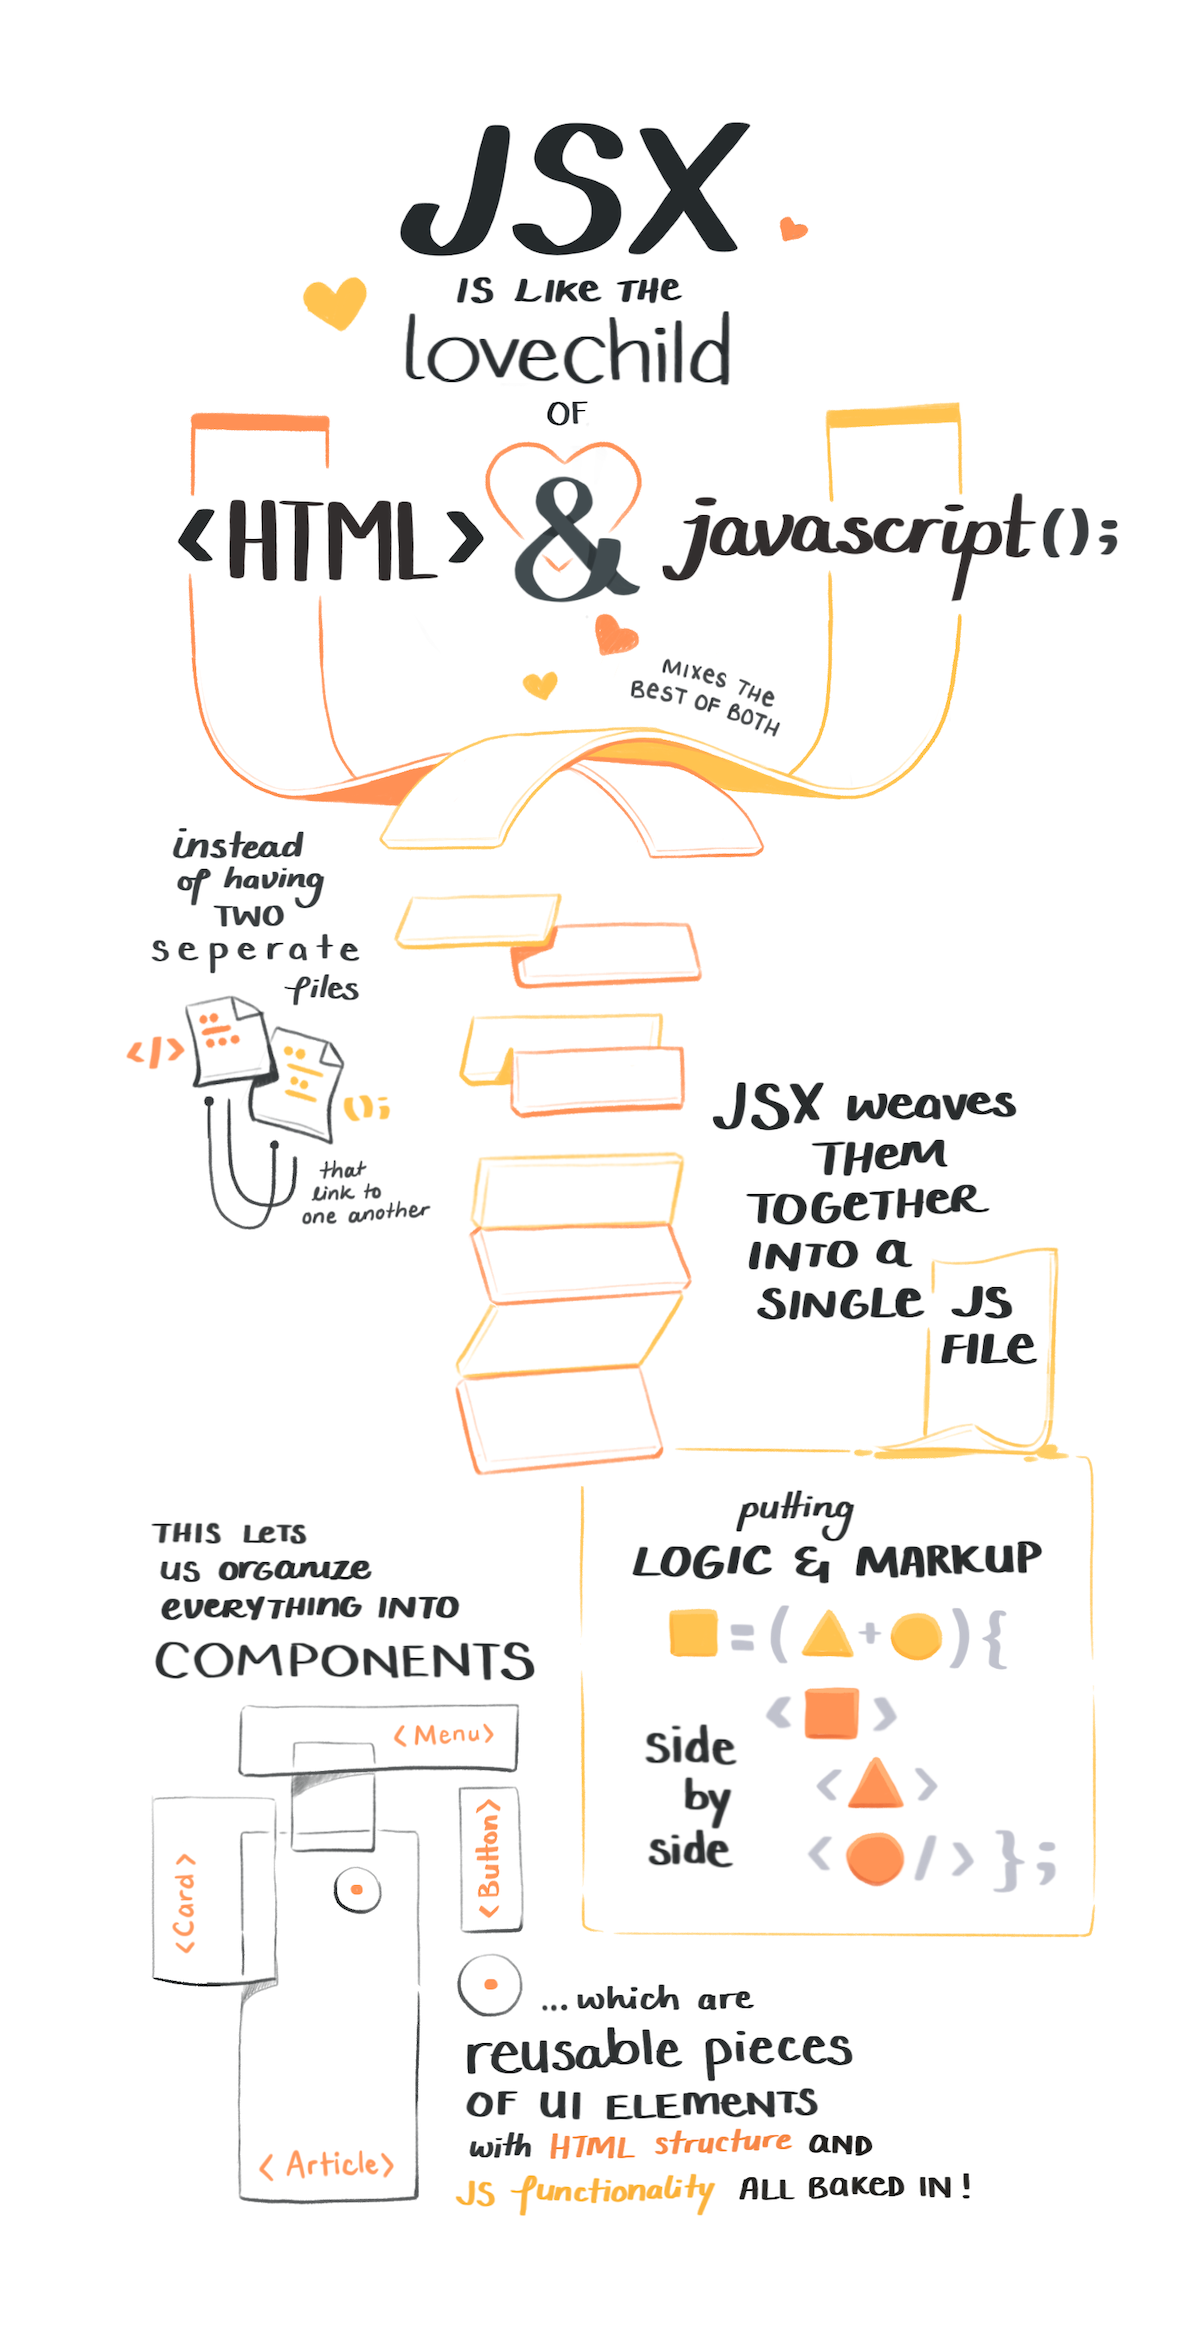 JSX
IS LIKE THE
lovechild
OF
<HTML> & javascript();
MIXES THE
BEST OF BOTH
instead
of having
TWO
seperate
files
</>
();
that
link to
one another
JSX weaves
THEM
TOGETHER
INTO a
SINGLE JS
FILE
putting
LOGIC & MARKUP
= ( + ) {
< >
side
by
side
< >
< /> };
THIS LETS
us organize
everything into
COMPONENTS
<Menu>
<Card>
<Button>
<Article>
...which are
reusable pieces
OF UI ELEMENTS
with HTML structure AND
JS functionality ALL BAKED IN!